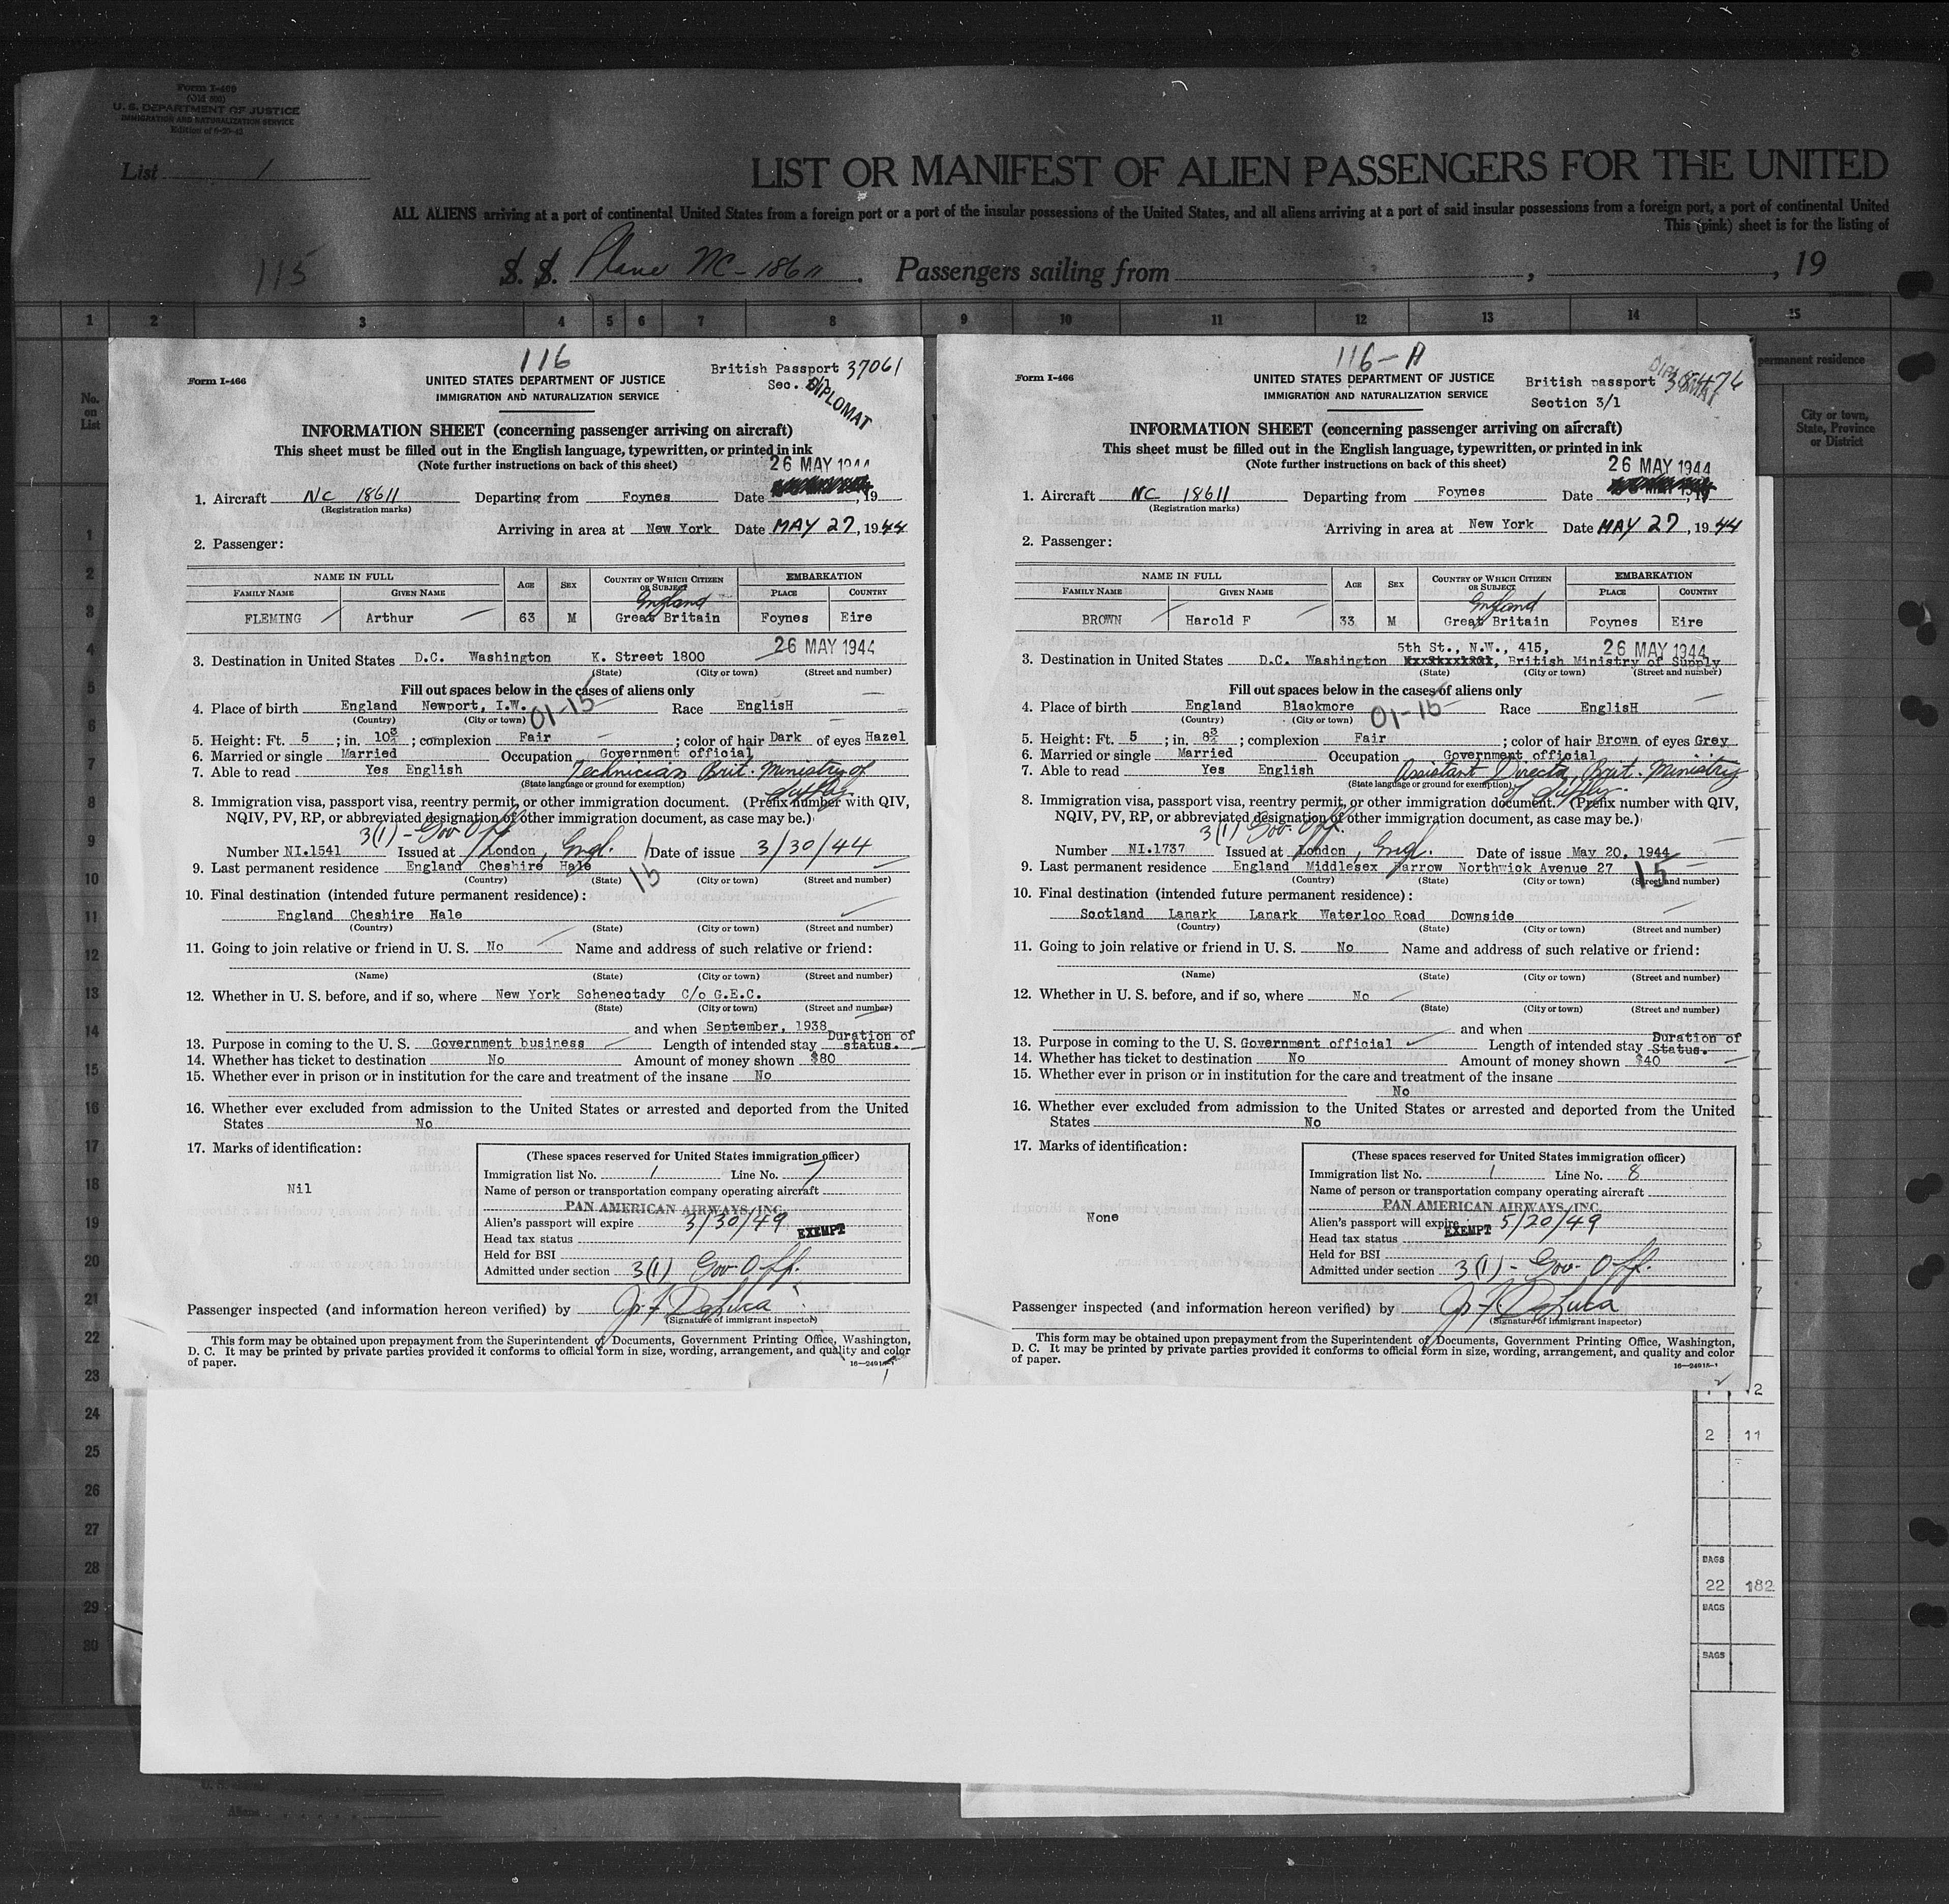 Form I-469
(Old 500)
U. S. DEPARTMENT OF JUSTICE
IMMIGRATION AND NATURALIZATION SERVICE
List 1
LIST OR MANIFEST OF ALIEN PASSENGERS FOR THE UNITED
ALL ALIENS arriving at a port of continental United States from a foreign port or a port of the insular possessions of the United States, and all aliens arriving at a port of said insular possessions from a foreign port, a port of continental United
This (pink) sheet is for the listing of
115 S. S. Plane NC-18611. Passengers sailing from , , 19
1 2 3 4 5 6 7 8 9 10 11 12 13 14 15
No. on List
permanent residence
City or town, State, Province or District
116
Form I-466
UNITED STATES DEPARTMENT OF JUSTICE
IMMIGRATION AND NATURALIZATION SERVICE
British Passport 37061
Sec.
DIPLOMAT
INFORMATION SHEET (concerning passenger arriving on aircraft)
This sheet must be filled out in the English language, typewritten, or printed in ink
(Note further instructions on back of this sheet)
26 MAY 1944
1. Aircraft NC 18611 Departing from Foynes Date , 19
(Registration marks)
Arriving in area at New York Date MAY 27, 1944
2. Passenger:
NAME IN FULL AGE SEX COUNTRY OF WHICH CITIZEN OR SUBJECT EMBARKATION
FAMILY NAME GIVEN NAME PLACE COUNTRY
England
FLEMING Arthur 63 M Great Britain Foynes Eire
26 MAY 1944
3. Destination in United States D.C. Washington K. Street 1800
(State) (City or town) (Street and number)
Fill out spaces below in the cases of aliens only
4. Place of birth England Newport, I.W. Race EnglisH
(Country) (City or town) 01-15
5. Height: Ft. 5 ; in. 10¾ ; complexion Fair ; color of hair Dark of eyes Hazel
6. Married or single Married Occupation Government official
7. Able to read Yes English Technician Brit. Ministry of Supply
(State language or ground for exemption)
8. Immigration visa, passport visa, reentry permit, or other immigration document. (Prefix number with QIV,
NQIV, PV, RP, or abbreviated designation of other immigration document, as case may be.)
3(1) - Gov Off
Number NI.1541 Issued at London, Engl. Date of issue 3/30/44
9. Last permanent residence England Cheshire Hale 15
(Country) (State) (City or town) (Street and number)
10. Final destination (intended future permanent residence):
England Cheshire Hale
(Country) (State) (City or town) (Street and number)
11. Going to join relative or friend in U. S. No Name and address of such relative or friend:
(Name) (State) (City or town) (Street and number)
12. Whether in U. S. before, and if so, where New York Schenectady C/o G.E.C.
(State) (City or town) (Street and number)
and when September, 1938
13. Purpose in coming to the U. S. Government business Length of intended stay Duration of status.
14. Whether has ticket to destination No Amount of money shown $80
15. Whether ever in prison or in institution for the care and treatment of the insane No
16. Whether ever excluded from admission to the United States or arrested and deported from the United
States No
17. Marks of identification:
Nil
(These spaces reserved for United States immigration officer)
Immigration list No. 1 Line No. 7
Name of person or transportation company operating aircraft
PAN AMERICAN AIRWAYS, INC.
Alien's passport will expire 3/30/49
Head tax status EXEMPT
Held for BSI
Admitted under section 3(1) Gov. Off.
Passenger inspected (and information hereon verified) by J. F. DeLuca
(Signature of immigrant inspector)
This form may be obtained upon prepayment from the Superintendent of Documents, Government Printing Office, Washington,
D. C. It may be printed by private parties provided it conforms to official form in size, wording, arrangement, and quality and color
of paper.
16—24915-1
1
116-A
Form I-466
UNITED STATES DEPARTMENT OF JUSTICE
IMMIGRATION AND NATURALIZATION SERVICE
British passport 38476
Section 3/1
DIPLOMAT
INFORMATION SHEET (concerning passenger arriving on aircraft)
This sheet must be filled out in the English language, typewritten, or printed in ink
(Note further instructions on back of this sheet)
26 MAY 1944
1. Aircraft NC 18611 Departing from Foynes Date
(Registration marks)
Arriving in area at New York Date MAY 27, 1944
2. Passenger:
NAME IN FULL AGE SEX COUNTRY OF WHICH CITIZEN OR SUBJECT EMBARKATION
FAMILY NAME GIVEN NAME PLACE COUNTRY
England
BROWN Harold F 33 M Great Britain Foynes Eire
5th St., N.W., 415, 26 MAY 1944
3. Destination in United States D.C. Washington British Ministry of Supply
(State) (City or town) (Street and number)
Fill out spaces below in the cases of aliens only
4. Place of birth England Blackmore Race EnglisH
(Country) (City or town) 01-15
5. Height: Ft. 5 ; in. 8¾ ; complexion Fair ; color of hair Brown of eyes Grey
6. Married or single Married Occupation Government official
7. Able to read Yes English Assistant Director, Brit. Ministry of Supply
(State language or ground for exemption)
8. Immigration visa, passport visa, reentry permit, or other immigration document. (Prefix number with QIV,
NQIV, PV, RP, or abbreviated designation of other immigration document, as case may be.)
3(1) Gov. Off.
Number NI.1737 Issued at London, Engl. Date of issue May 20, 1944
9. Last permanent residence England Middlesex Harrow Northwick Avenue 27 15
(Country) (State) (City or town) (Street and number)
10. Final destination (intended future permanent residence):
Scotland Lanark Lanark Waterloo Road Downside
(Country) (State) (City or town) (Street and number)
11. Going to join relative or friend in U. S. No Name and address of such relative or friend:
(Name) (State) (City or town) (Street and number)
12. Whether in U. S. before, and if so, where No
(State) (City or town) (Street and number)
and when
13. Purpose in coming to the U. S. Government official Length of intended stay Duration of Status.
14. Whether has ticket to destination No Amount of money shown $40
15. Whether ever in prison or in institution for the care and treatment of the insane
No
16. Whether ever excluded from admission to the United States or arrested and deported from the United
States No
17. Marks of identification:
None
(These spaces reserved for United States immigration officer)
Immigration list No. 1 Line No. 8
Name of person or transportation company operating aircraft
PAN AMERICAN AIRWAYS, INC.
Alien's passport will expire 5/20/49
Head tax status EXEMPT
Held for BSI
Admitted under section 3(1) - Gov. Off.
Passenger inspected (and information hereon verified) by J. F. DeLuca
(Signature of immigrant inspector)
This form may be obtained upon prepayment from the Superintendent of Documents, Government Printing Office, Washington,
D. C. It may be printed by private parties provided it conforms to official form in size, wording, arrangement, and quality and color
of paper.
16—24915-1
2
1
2
3
4
5
6
7
8
9
10
11
12
13
14
15
16
17
18
19
20
21
22
23
24
25
26
27
28
29
30
2 11
BAGS
22 182
BAGS
BAGS
Aliens